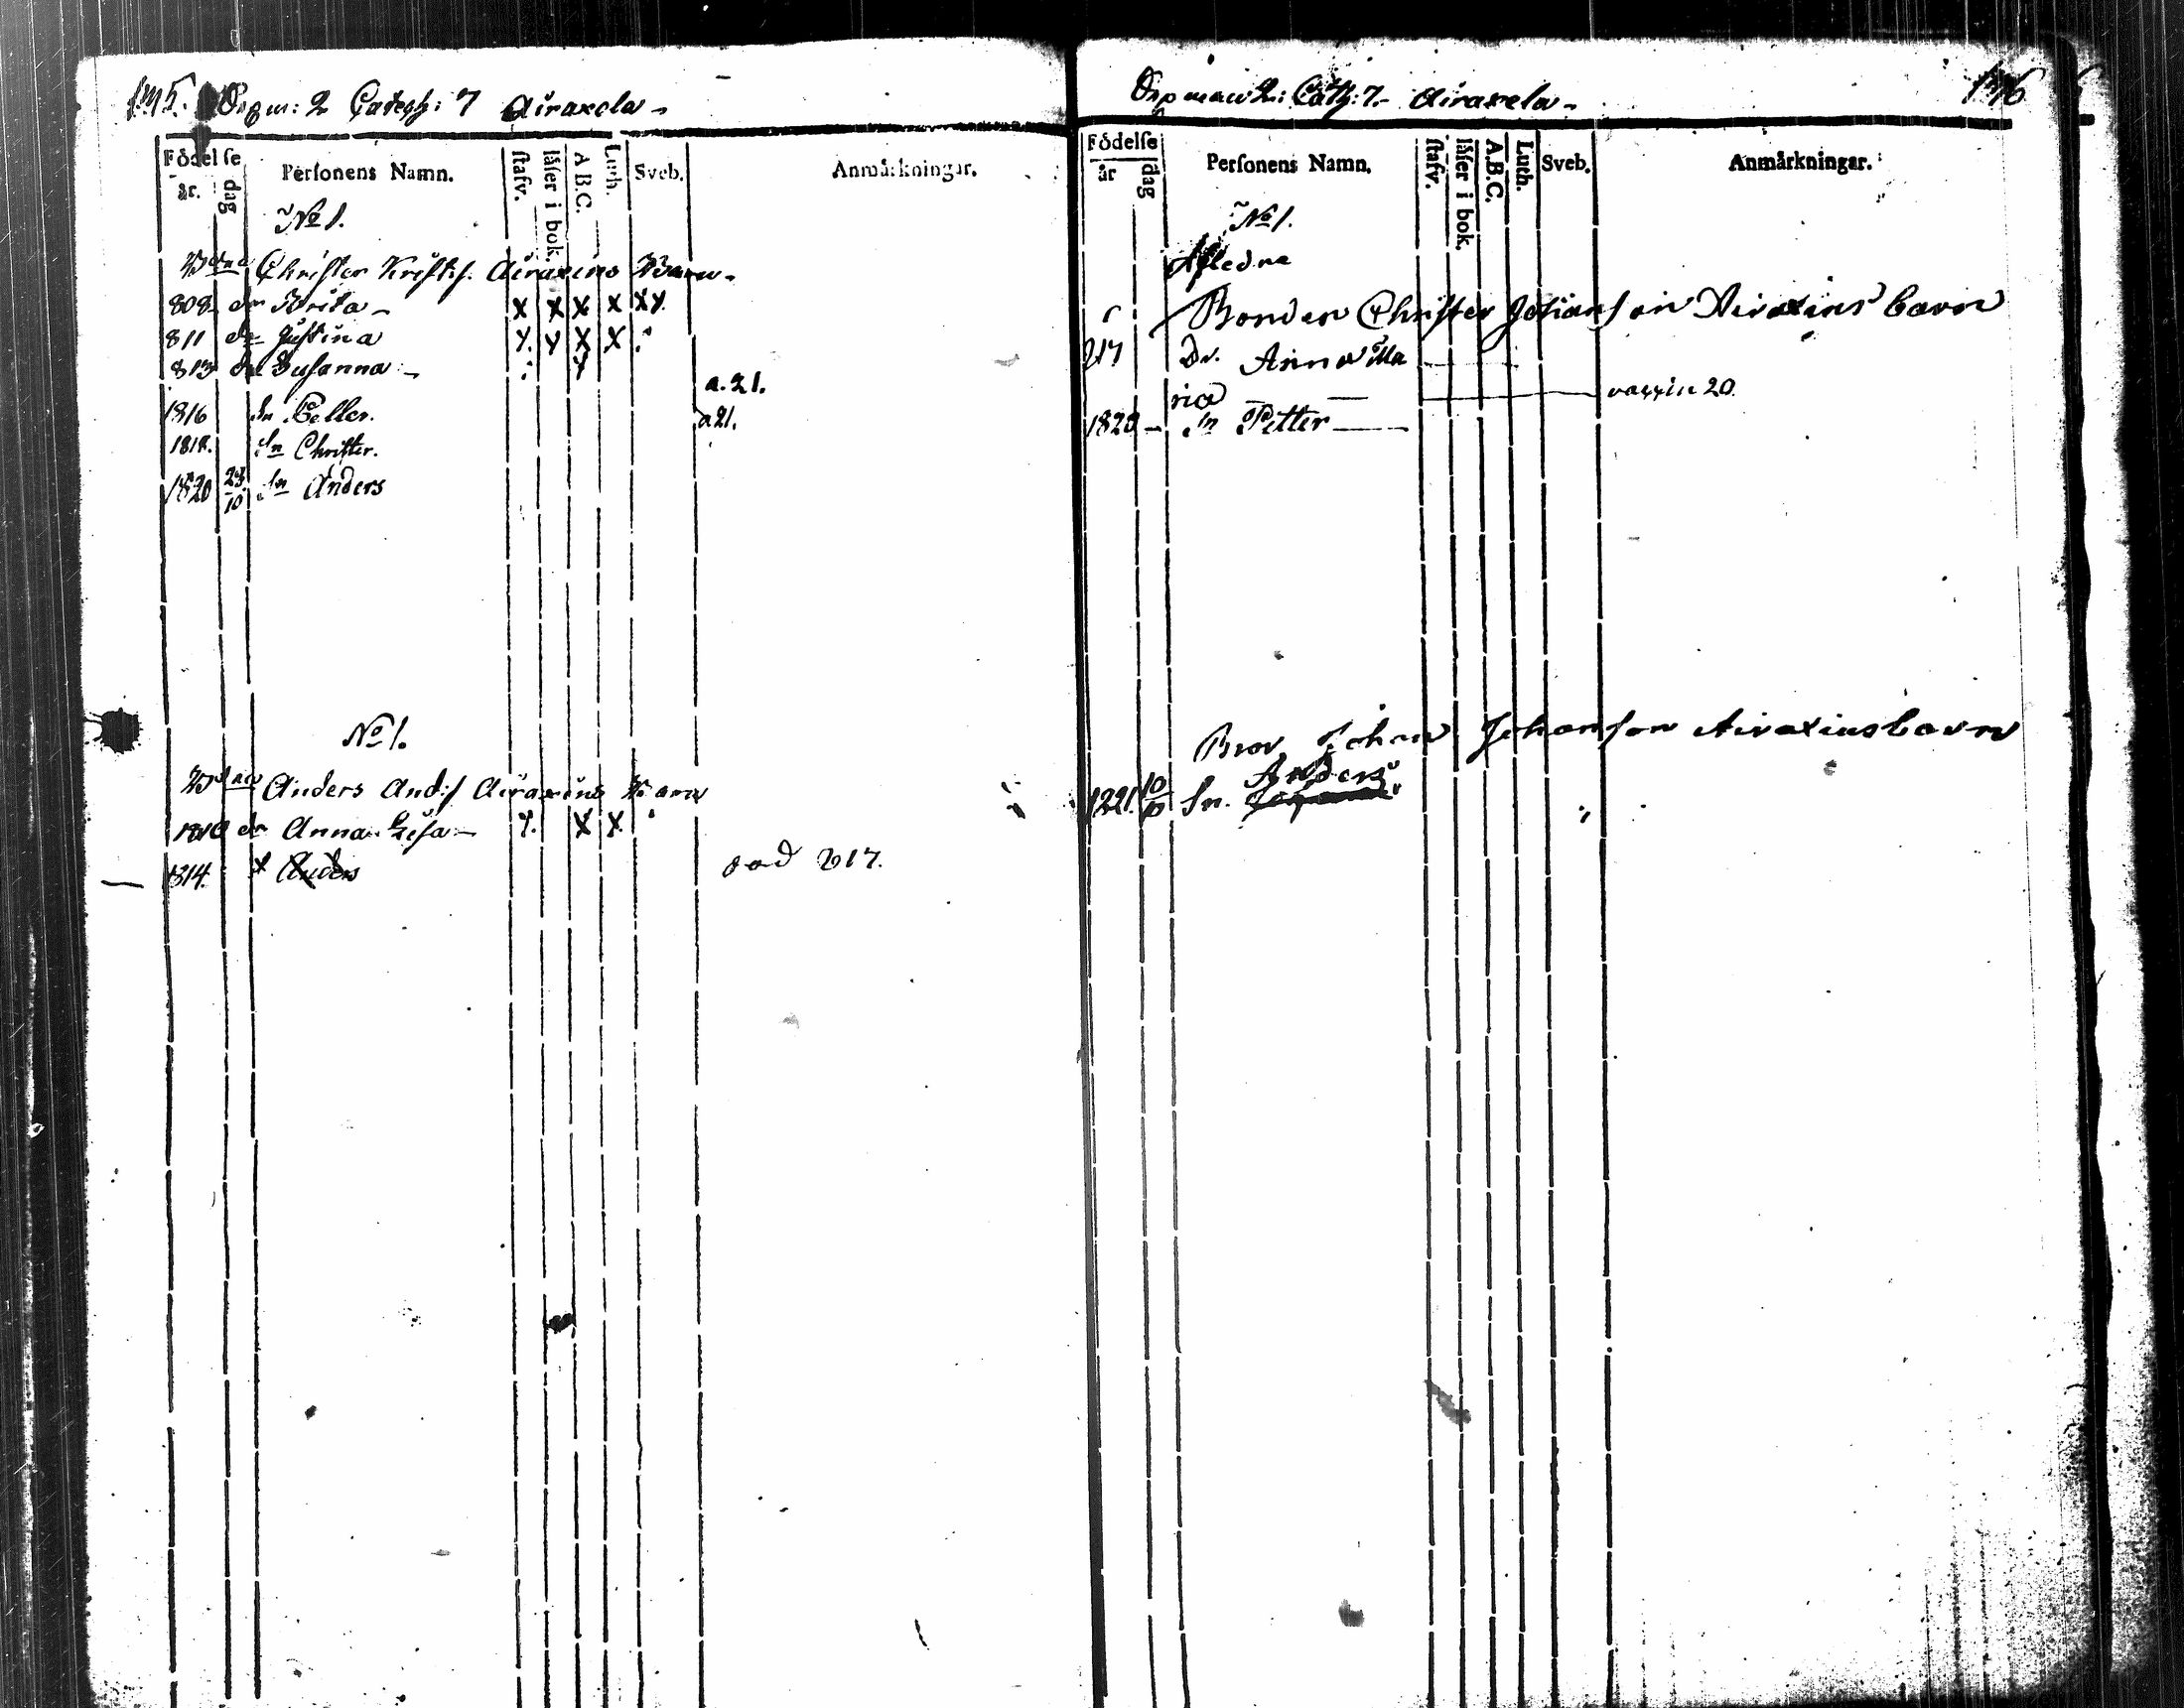 Catech: 7 Airaxela
Födelse
år. dag
Personens Namn.
stafv.
läser i bok.
A.B.C.
Luth.
Sveb.
Anmärkningar.
No 1.
Christer Airaxins Barn
808 dr Brita x x x x x x
811 dr Justina x x
813 Susanna
a. 21.
1816 Sn Petter. a 21.
1818. Sn Christer.
1820 23/10 Sn Anders
No 1.
Anders And:s Airaxins Barn
1810 dr Anna Lisa x x
1814. Anders död 817.
2: 7. Airaxela
Födelse
år dag
Personens Namn.
stafv.
läser i bok.
A.B.C.
Luth.
Sveb.
Anmärkningar.
No 1.
Afledne
Bonden Christer Johansson Airaxins barn
817 Dr. Anna Ma
ria vaxxin 20.
1820 Sn Petter
Johan Johanson Airaxins barn
Anders
Sn.